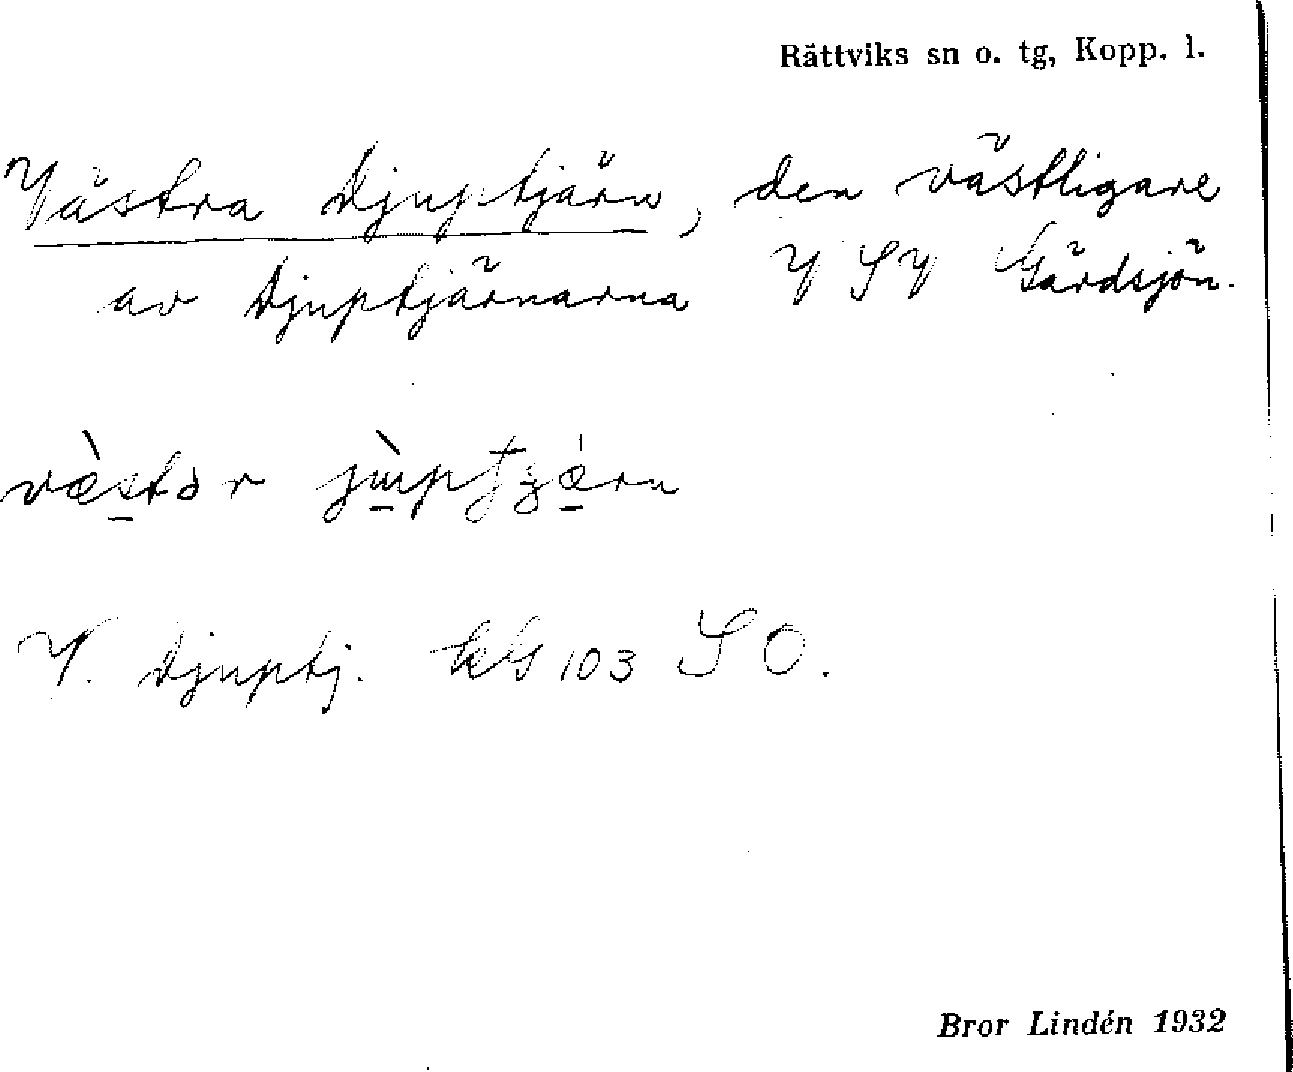 Rättviks sn o. tg, Kopp. l.
Västra Djuptjärn, den västligare
av Djuptjärnarna V SV Gärdsjön.
væ̀stər
V. Djuptj. GK 103 SO.
Bror Lindén 1932